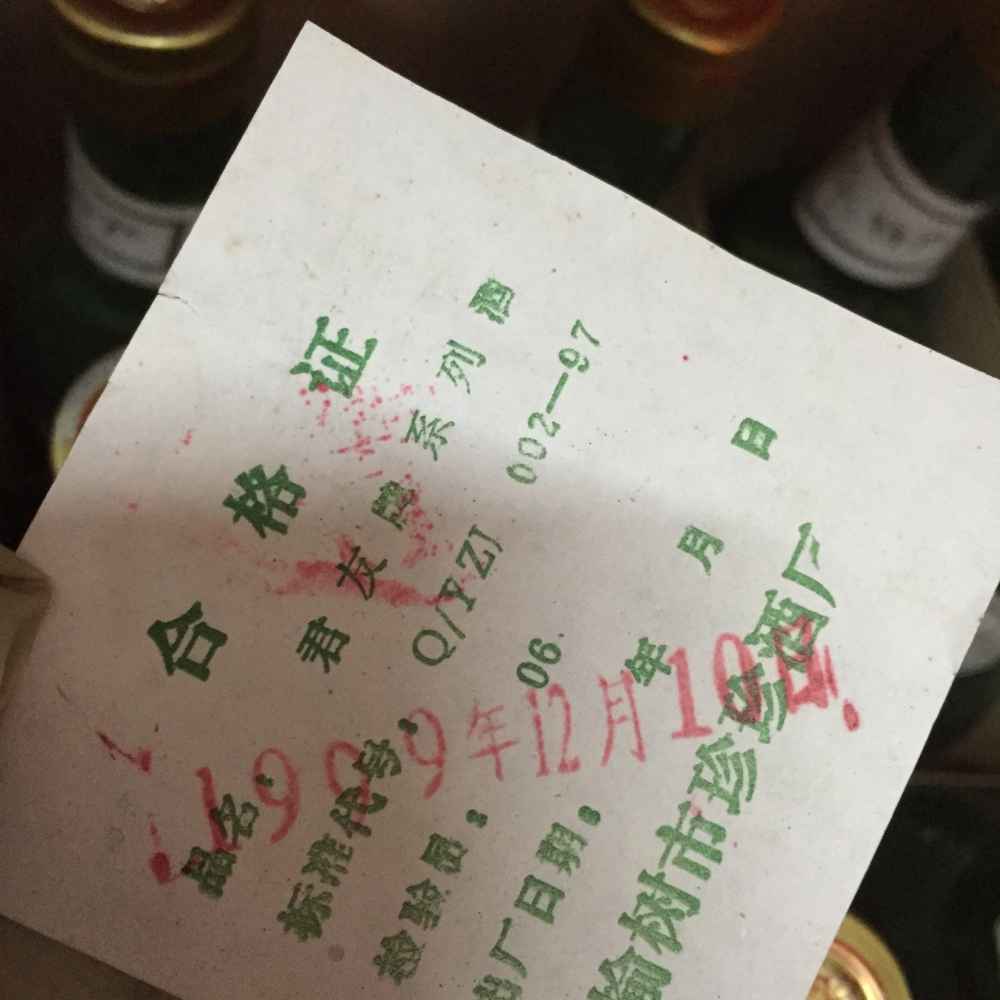 合格证
品名：君友牌系列酒
标准代号：Q/YZJ 002—97
检验员：06
出厂日期： 年 月 日
榆树市珍珍酒厂
1999年12月10日